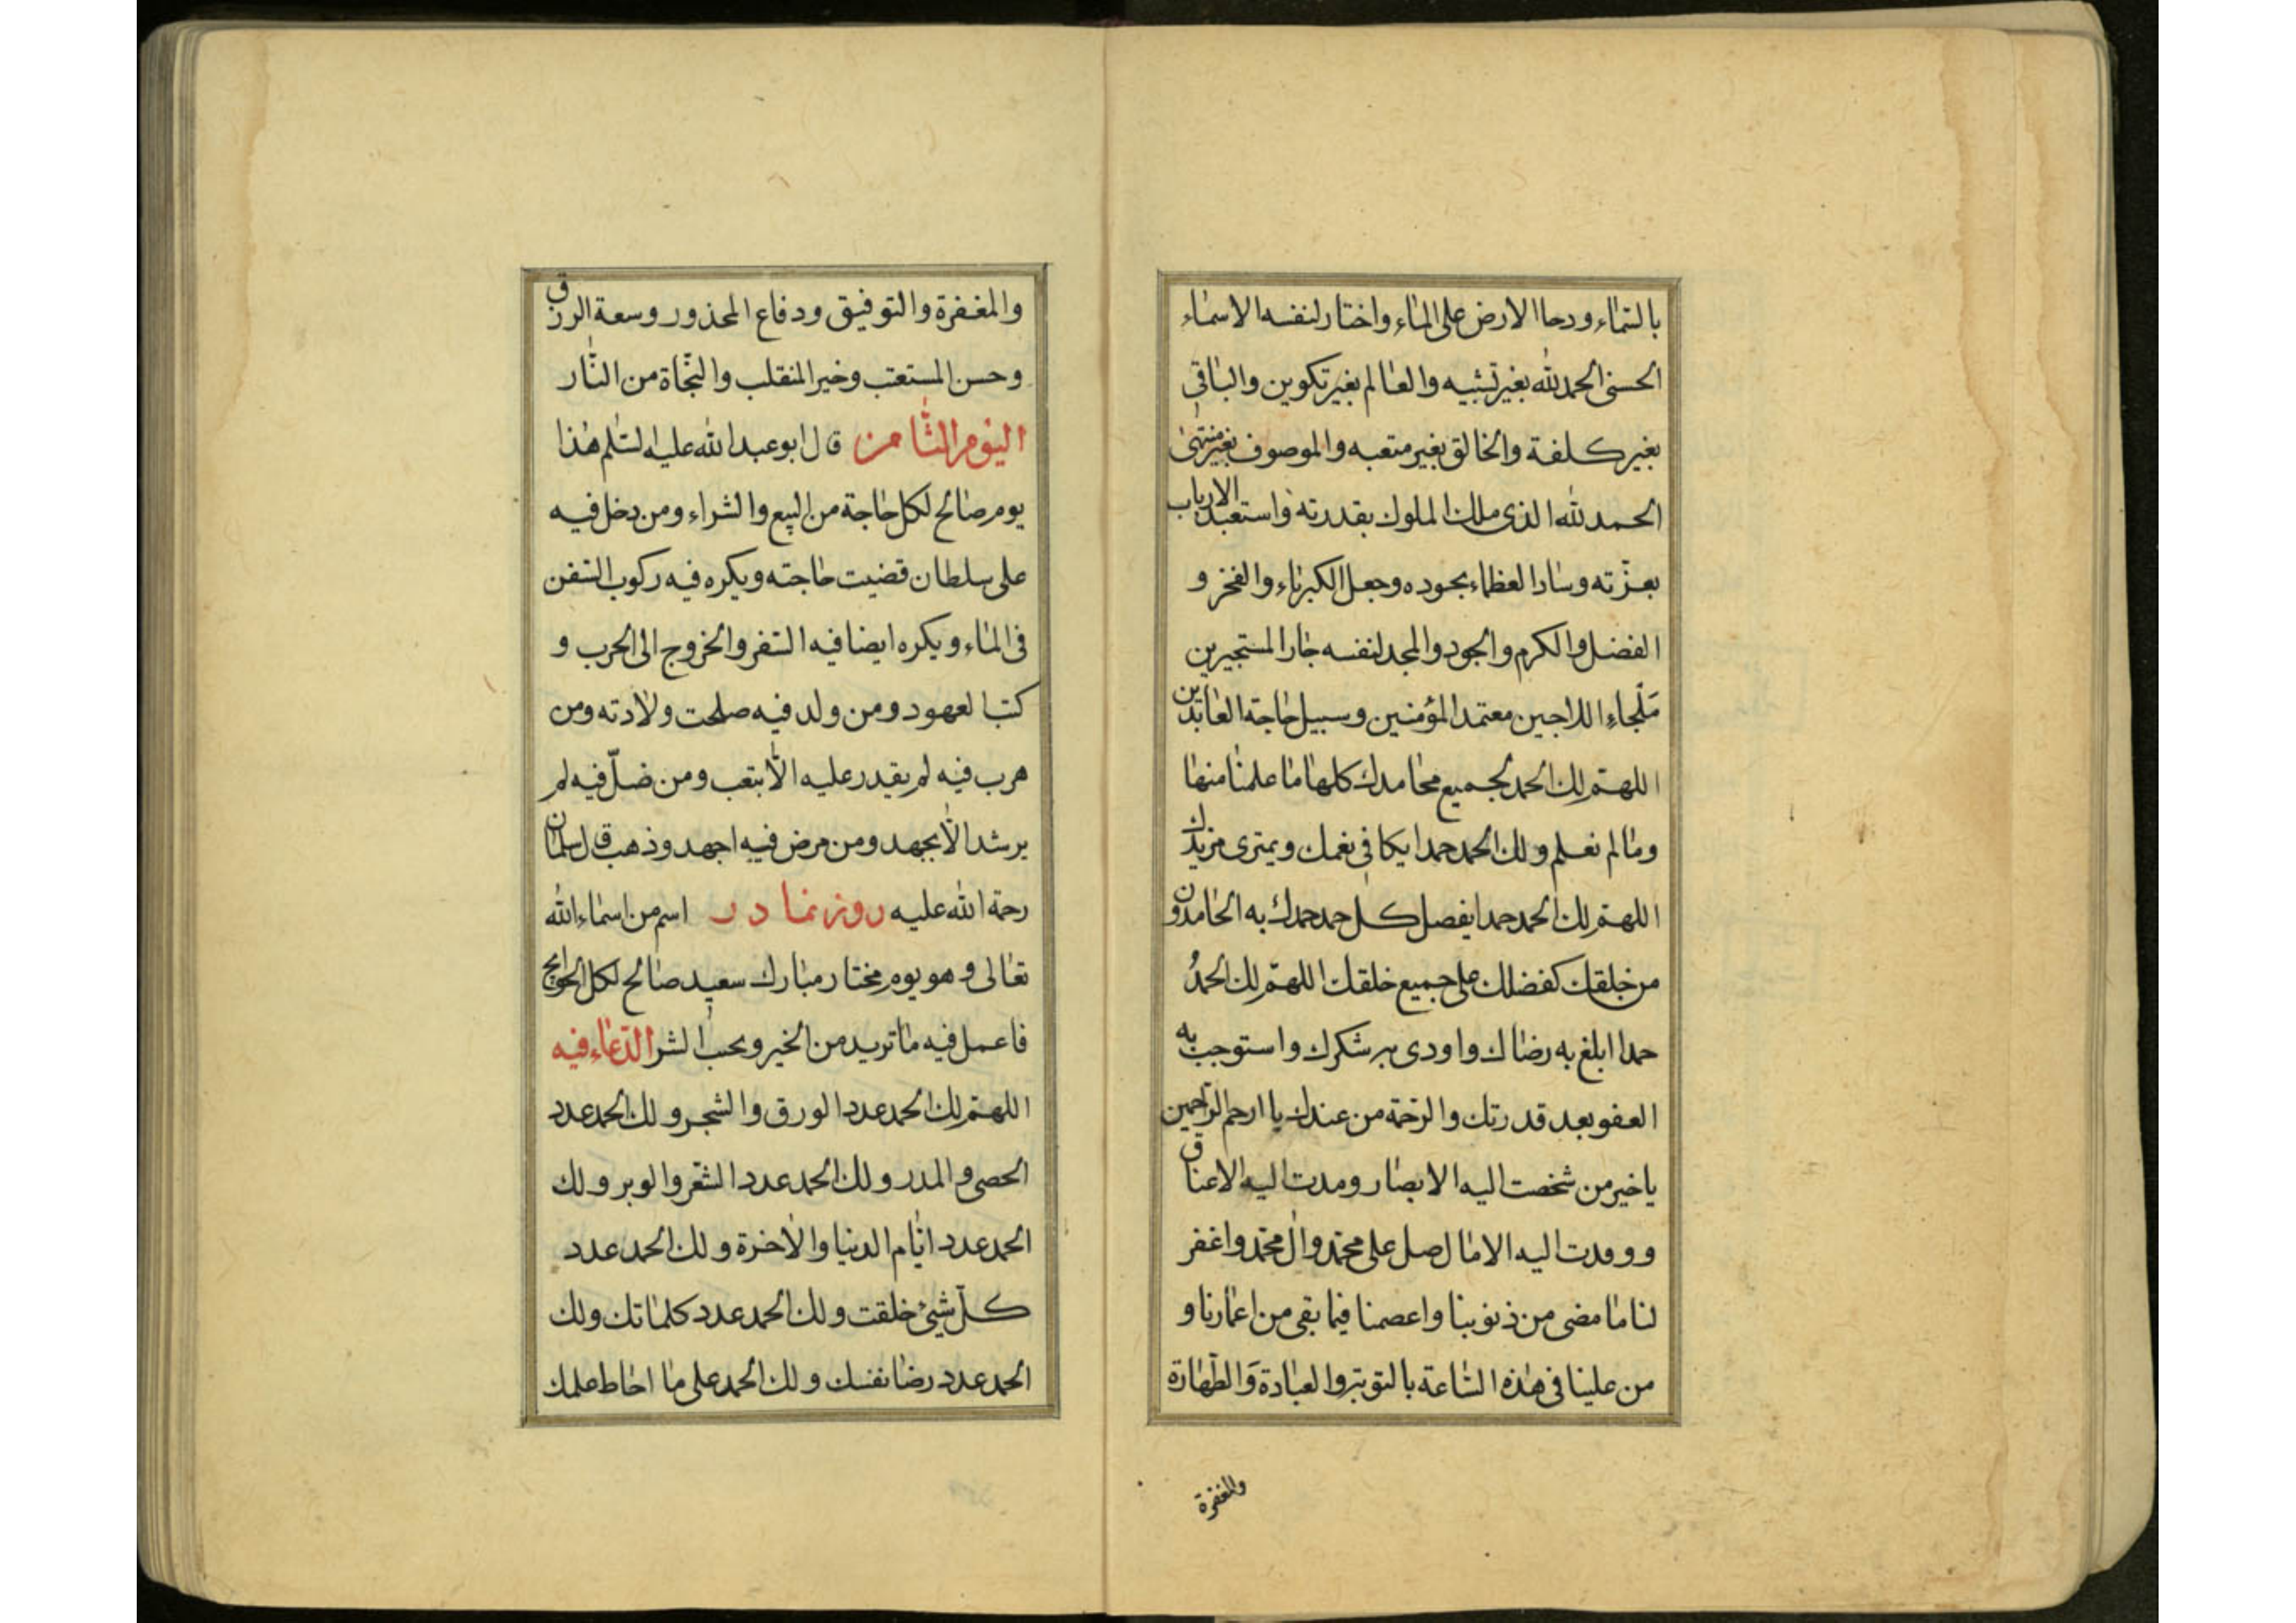 بالسماء ودحا الارض على الماء واختار لنفسه الاسماء
الحسنى الحمد لله بغير تشبيه والعالم بغير تكوين والباقى
بغير كلفة والخالق بغير متعبه والموصوف بغير منتهى
الحمد لله الذى ملك الملوك بقدرته واستعبد الارباب
بعزّته وساد العظماء بجوده وجعل الكبرياء والفخر و
الفضل والكرم والجود والمجد لنفسه جار المستجيرين
مَلْجاءِ اللاجين معتمد المؤمنين وسبيل حاجة العابدين
اللهمّ لك الحمد بجميع محامدك كلها ما علمنا منها
وما لم نعلم ولك الحمد حمدا يكافى نعمك ويمترى مزيدك
اللهمّ لك الحمد حمدا يفصل كل حمد حمدك به الحامدون
من خلقك كفضلك على جميع خلقك اللهمّ لك الحمدُ
حمدا ابلغ به رضاك واودى به شكرك واستوجب به
العفو بعد قدرتك والرحمة من عندك يا ارحم الراحمين
يا خير من شخصت اليه الابصار ومدت اليه الاعناق
ووفدت اليه الامال صل على محمّد وال محمّد واغفر
لنا ما مضى من ذنوبنا واعصمنا فيما بقى من اعمارنا و
من علينا فى هذه السّاعة بالتوبة والعبادة وَالطّهارة
والمغفرة
والمغفرة والتوفيق ودفاع المحذور وسعة الرزق
وحسن المستعتب وخير المنقلب والنجّاة من النّار
اليوم الثامن قال ابو عبد الله عليه السّلم هذا
يوم صالح لكل حاجة من البيع والشراء ومن دخل فيه
على سلطان قضيت حاجته ويكره فيه ركوب السفن
فى الماء ويكره ايضا فيه السّفر والخروج الى الحرب و
كتب العهود ومن ولد فيه صلحت ولادته ومن
هرب فيه لم يقدر عليه الّا بتعب ومن ضلّ فيه لم
يرشد الّا بجهد ومن مرض فيه اجهد وذهب قال سلمان
رحمة الله عليه روز نما در اسم من اسماء الله
تعالى وهو يوم مختار مبارك سعيد صالح لكل الحوايج
فاعمل فيه ما تريد من الخير ويجب الشر الدّعاء فيه
اللهمّ لك الحمد عدد الورق والشجر ولك الحمد عدد
الحصى والمدر ولك الحمد عدد الشّعر والوبر ولك
الحمد عدد ايّام الدنيا والاخرة ولك الحمد عدد
كلّ شيئ خلقت ولك الحمد عدد كلماتك ولك
الحمد عدد رضا نفسك ولك الحمد على ما احاط علمك